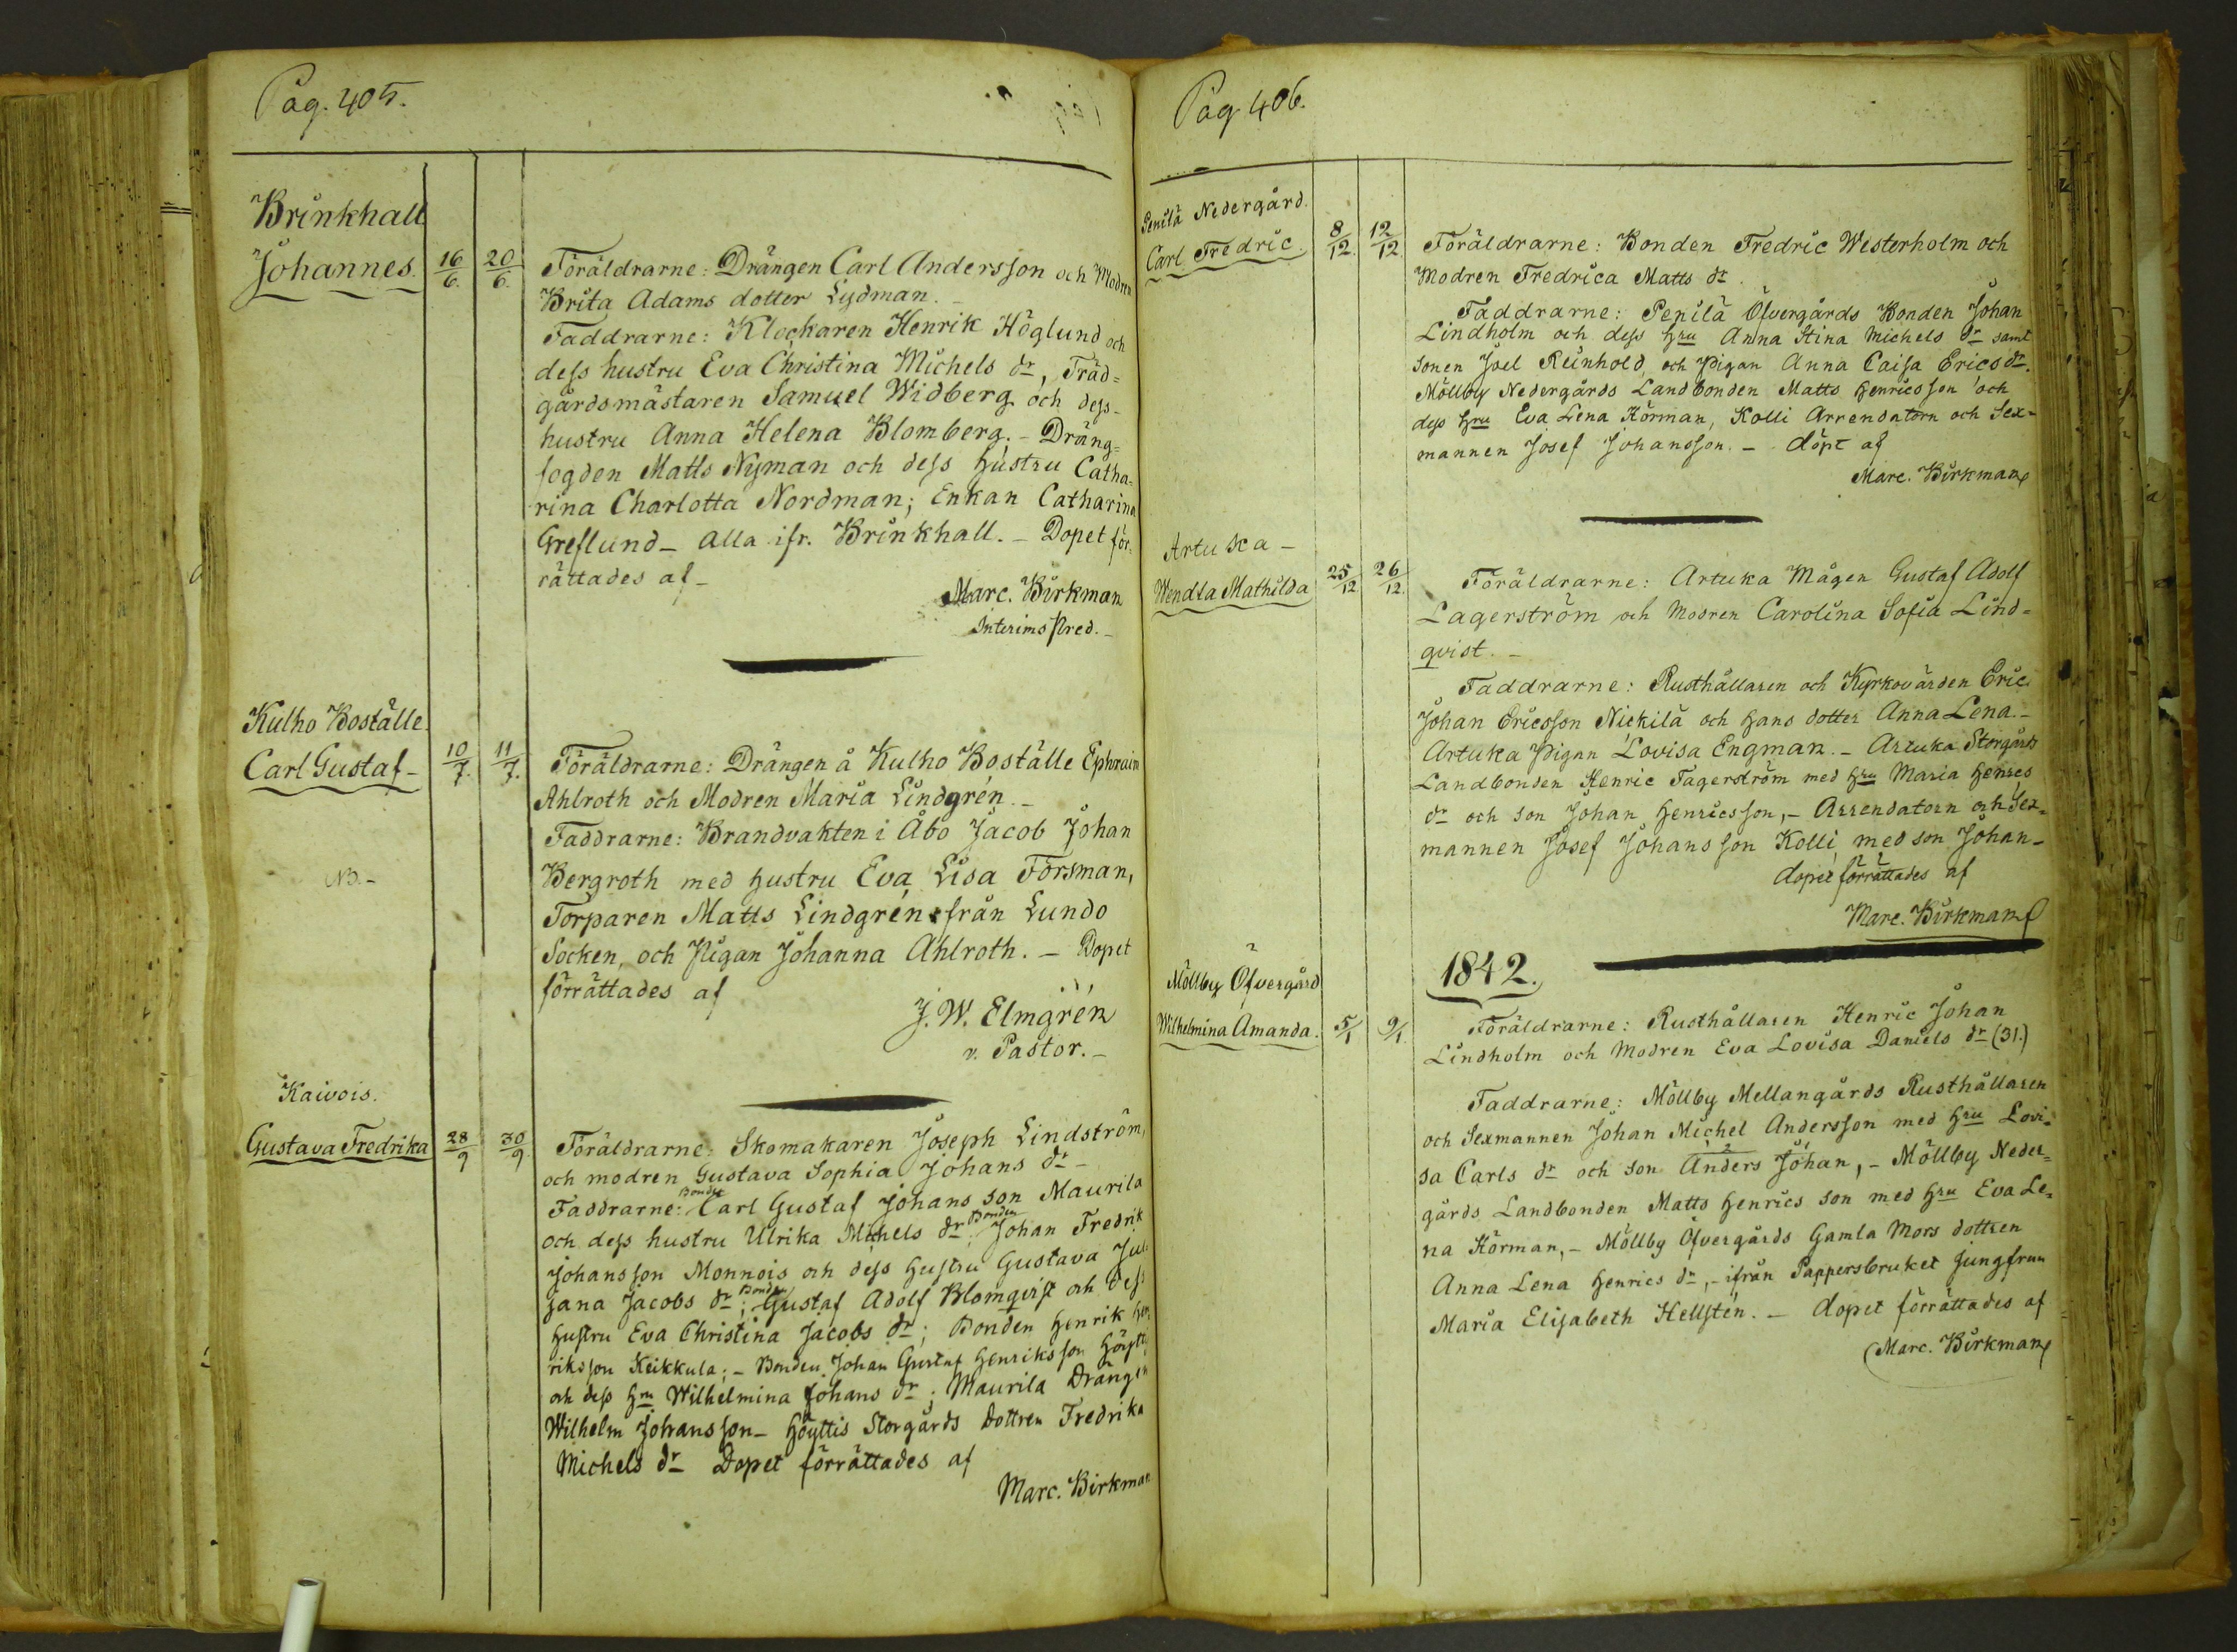 Pag. 405.
Brinkhall
Johannes.
16/6.
20/6.
Föräldrarne: Drängen Carl Andersson och Modren
Brita Adams dotter Lydman. –
Faddrarne: Klockaren Henrik Höglund och
dess hustru Eva Christina Michels dr, Träd=
gårdsmästaren Samuel Widberg och dess
hustru Anna Helena Blomberg. – Dräng=
fogden Matts Nyman och dess hustru Catha=
rina Charlotta Nordman; Enkan Catharina
Greflund – alla ifr. Brinkhall. – Dopet för=
rättades af –
Marc. Birkman
Interims Pred. –
Kulho Boställe.
Carl Gustaf –
10/7.
11/7.
Föräldrarne: Drängen å Kulho Boställe Ephraim
Ahlroth och Modren Maria Lindgrén. –
Faddrarne: Brandvakten i Åbo Jacob Johan
NB. –
Bergroth med hustru Eva Lisa Forsman,
Torparen Matts Lindgrén från Lundo
Socken, och Pigan Johanna Ahlroth. – Dopet
förrättades af
J. W. Elmgrén
v. Pastor. –
Kaivois.
Gustava Fredrika
28/9
30/9
Föräldrarne: Skomakaren Joseph Lindström,
och modren Gustava Sophia Johans dr –
Faddrarne: Bonden Carl Gustaf Johans son Maurila
och dess hustru Ulrika Michels dr; Bonden Johan Fredrik
Johansson Monnois och dess hustru Gustava Juli
jana Jacobs dr; Bonden Gustaf Adolf Blomqvist och dess
hustru Eva Christina Jacobs dr; Bonden Henrik Hen
riksson Keikkula; – Bonden Johan Gustaf Henriksson Höytti
och dess hru Wilhelmina Johans dr; Maurila Drängen
Wilhelm Johansson – Höyttis Storgårds Dottren Fredrika
Michels dr – Dopet förrättades af
Marc. Birkman
Pag 406.
Penilä Nedergård.
Carl Fredric.
8/12.
12/12.
Föräldrarne: Bonden Fredric Westerholm och
Modren Fredrica Matts dr.
Faddrarne: Penilä Öfvergårds Bonden Johan
Lindholm och dess hru Anna Stina Michels dr samt
sonen Joel Reinhold och Pigan Anna Caisa Erics dr.
Möllby Nedergårds Landbonden Matts Henricsson och
dess hru Eva Lena Körman, Kolli Arrendatorn och Sex=
mannen Josef Johansson. – döpt af
Marc. Birkman
Artuka –
Wendla Mathilda
25/12
26/12.
Föräldrarne: Artuka Mågen Gustaf Adolf
Lagerström och Modren Carolina Sofia Lind=
qvist. –
Faddrarne: Rusthållaren och Kyrkovärden Eric
Johan Ericsson Nickilä och hans dotter Anna Lena. –
Artuka Pigan Lovisa Engman. – Artuka Storgårds
Landbonden Henric Fagerström med hru Maria Henrics
dr och son Johan Henricsson, – Arrendatorn och Sex=
mannen Josef Johansson Kolli med son Johan –
dopet förrättades af
Marc. Birkman
1842.
Möllby Öfvergård
Wilhelmina Amanda.
5/1
9/1.
Föräldrarne: Rusthållaren Henric Johan
Lindholm och Modren Eva Lovisa Daniels dr (31.)
Faddrarne: Möllby Mellangårds Rusthållaren
och Sexmannen Johan Michel Andersson med hru Lovi=
sa Carls dr och son Anders Johan, – Möllby Neder=
gårds Landbonden Matts Henrics son med hru Eva Le=
na Körman, – Möllby Öfvergårds Gamla Mors dottren
Anna Lena Henrics dr, – ifrån Pappersbruket Jungfrun
Maria Elisabeth Hellstén. – dopet förrättades af
Marc. Birkman